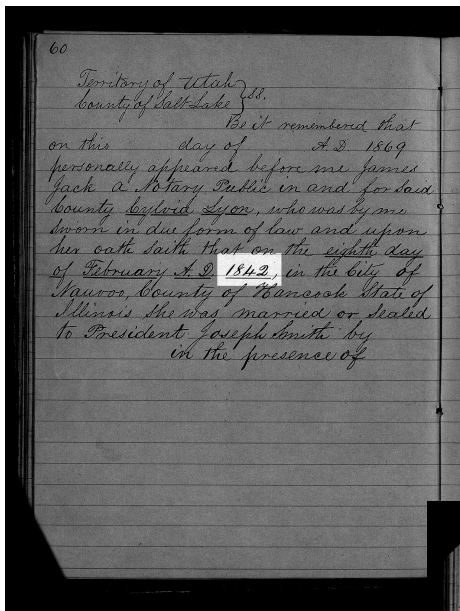 60
Territory of Utah } SS.
County of Salt Lake
Be it remembered that
on this day of A.D 1869
personally appeared before me James
Jack a Notary Public in and for said
County Cylvia Lyon, who was by me
sworn in due form of law and upon
her oath saith that on the eighth day
of February A.D. 1842, in the City of
Nauvoo, County of Hancock State of
Illinois She was married or Sealed
to President Joseph Smith by
in the presence of